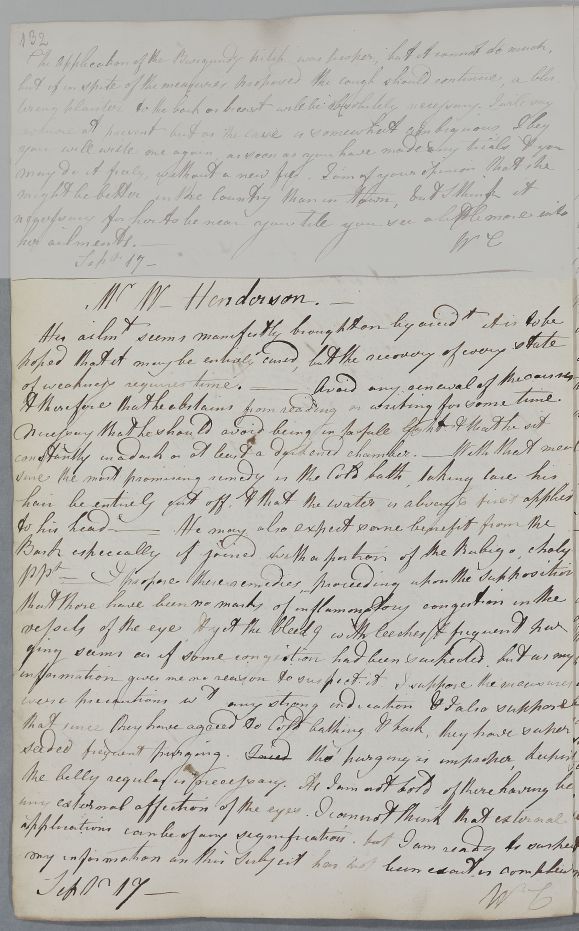 132
The application of the Burgundy Pitch was proper, but it cannot do much,
but if in spite of the measures proposed the cough should continue, a blis
tering plaister to the back or breast will be absolutely necessary. I will say
no more at present but as the case is somewhat ambiguous, I beg
you will write me again, as soon as you have made any trials & you
may do it freely, without a new fee. I am of your opinion that she
might be better in the Country than in Town, but I think it
necessary for her to be near you till you see a little more into
her ailments. —
Septr 17 —
W C
Mr W Henderson. —
His ailmt seems manifestly brought on by accidt it is to be
hoped that it may be entirely cured, but the recovery of every state
of weakness requires time. — Avoid any renewal of the causes
& therefore that he abstains from reading or writing for some time
necessary that he should avoid being in ample light & that he sit
constantly in a dark or at least a darkened chamber. — With that mea
sure the most promising remedy is the Cold bath, taking care his
hair be entirely cut off & that the water is always first applied
to his head — He may also expect some benefit from the
Bark especially if joined with a portion of the Rubigo, chalyb
ppt — I propose these remedies, proceeding upon the supposition
that there have been no marks of inflammatory congestion in the
vessels of the eye & yet the bleedg with leeches & frequent pur
ging seems as if some congestion had been suspected, but as my
information gives me no reason to suspect it. I suppose the measures
were precautions wt any strong indication & I also suppose
that since they have agreed to Cold bathing & bark, they have super
seded frequent purging. the purging is improper keeping
the belly regular is necessary. As I am not told of there having be
any external affection of the eyes. I cannot think that external
applications can be of any signification. but I am ready to suspect
my information on this subject has not been exact or complete
Septr 17 —
W C